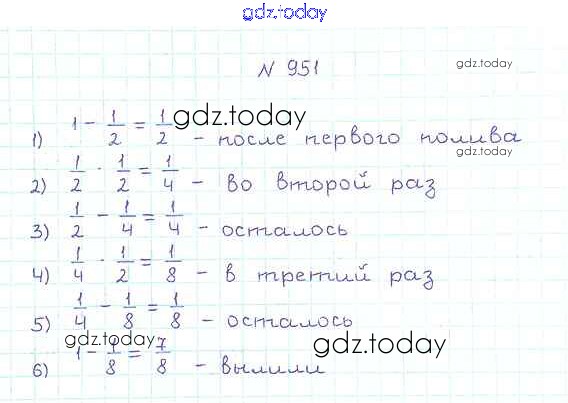 gdz.today
N 951
gdz.today
1) 1 - 1/2 = 1/2 - после первого полива
gdz.today
gdz.today
2) 1/2 · 1/2 = 1/4 - во второй раз
3) 1/2 - 1/4 = 1/4 - осталось
4) 1/4 · 1/2 = 1/8 - в третий раз
5) 1/4 - 1/8 = 1/8 - осталось
gdz.today
gdz.today
6) 1 - 1/8 = 7/8 - вылили